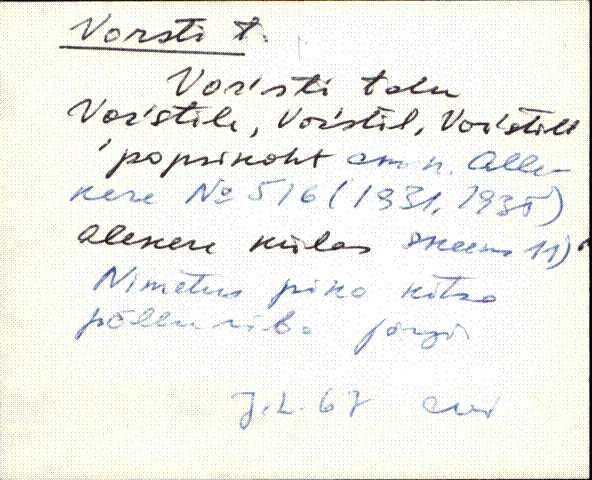 Vorsti t.
Vor'sti talu
Vor'stile, Vor'stil, Vor'stilt
'popsikoht am. n. Alle-
kere № 516 (1931, 1935)
alekere külas skeem 11).
Nimetus pika kitsa
põlluriba järgi
J.L. 67